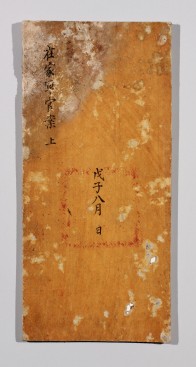 莊家洞官案 上
戊子八月 日